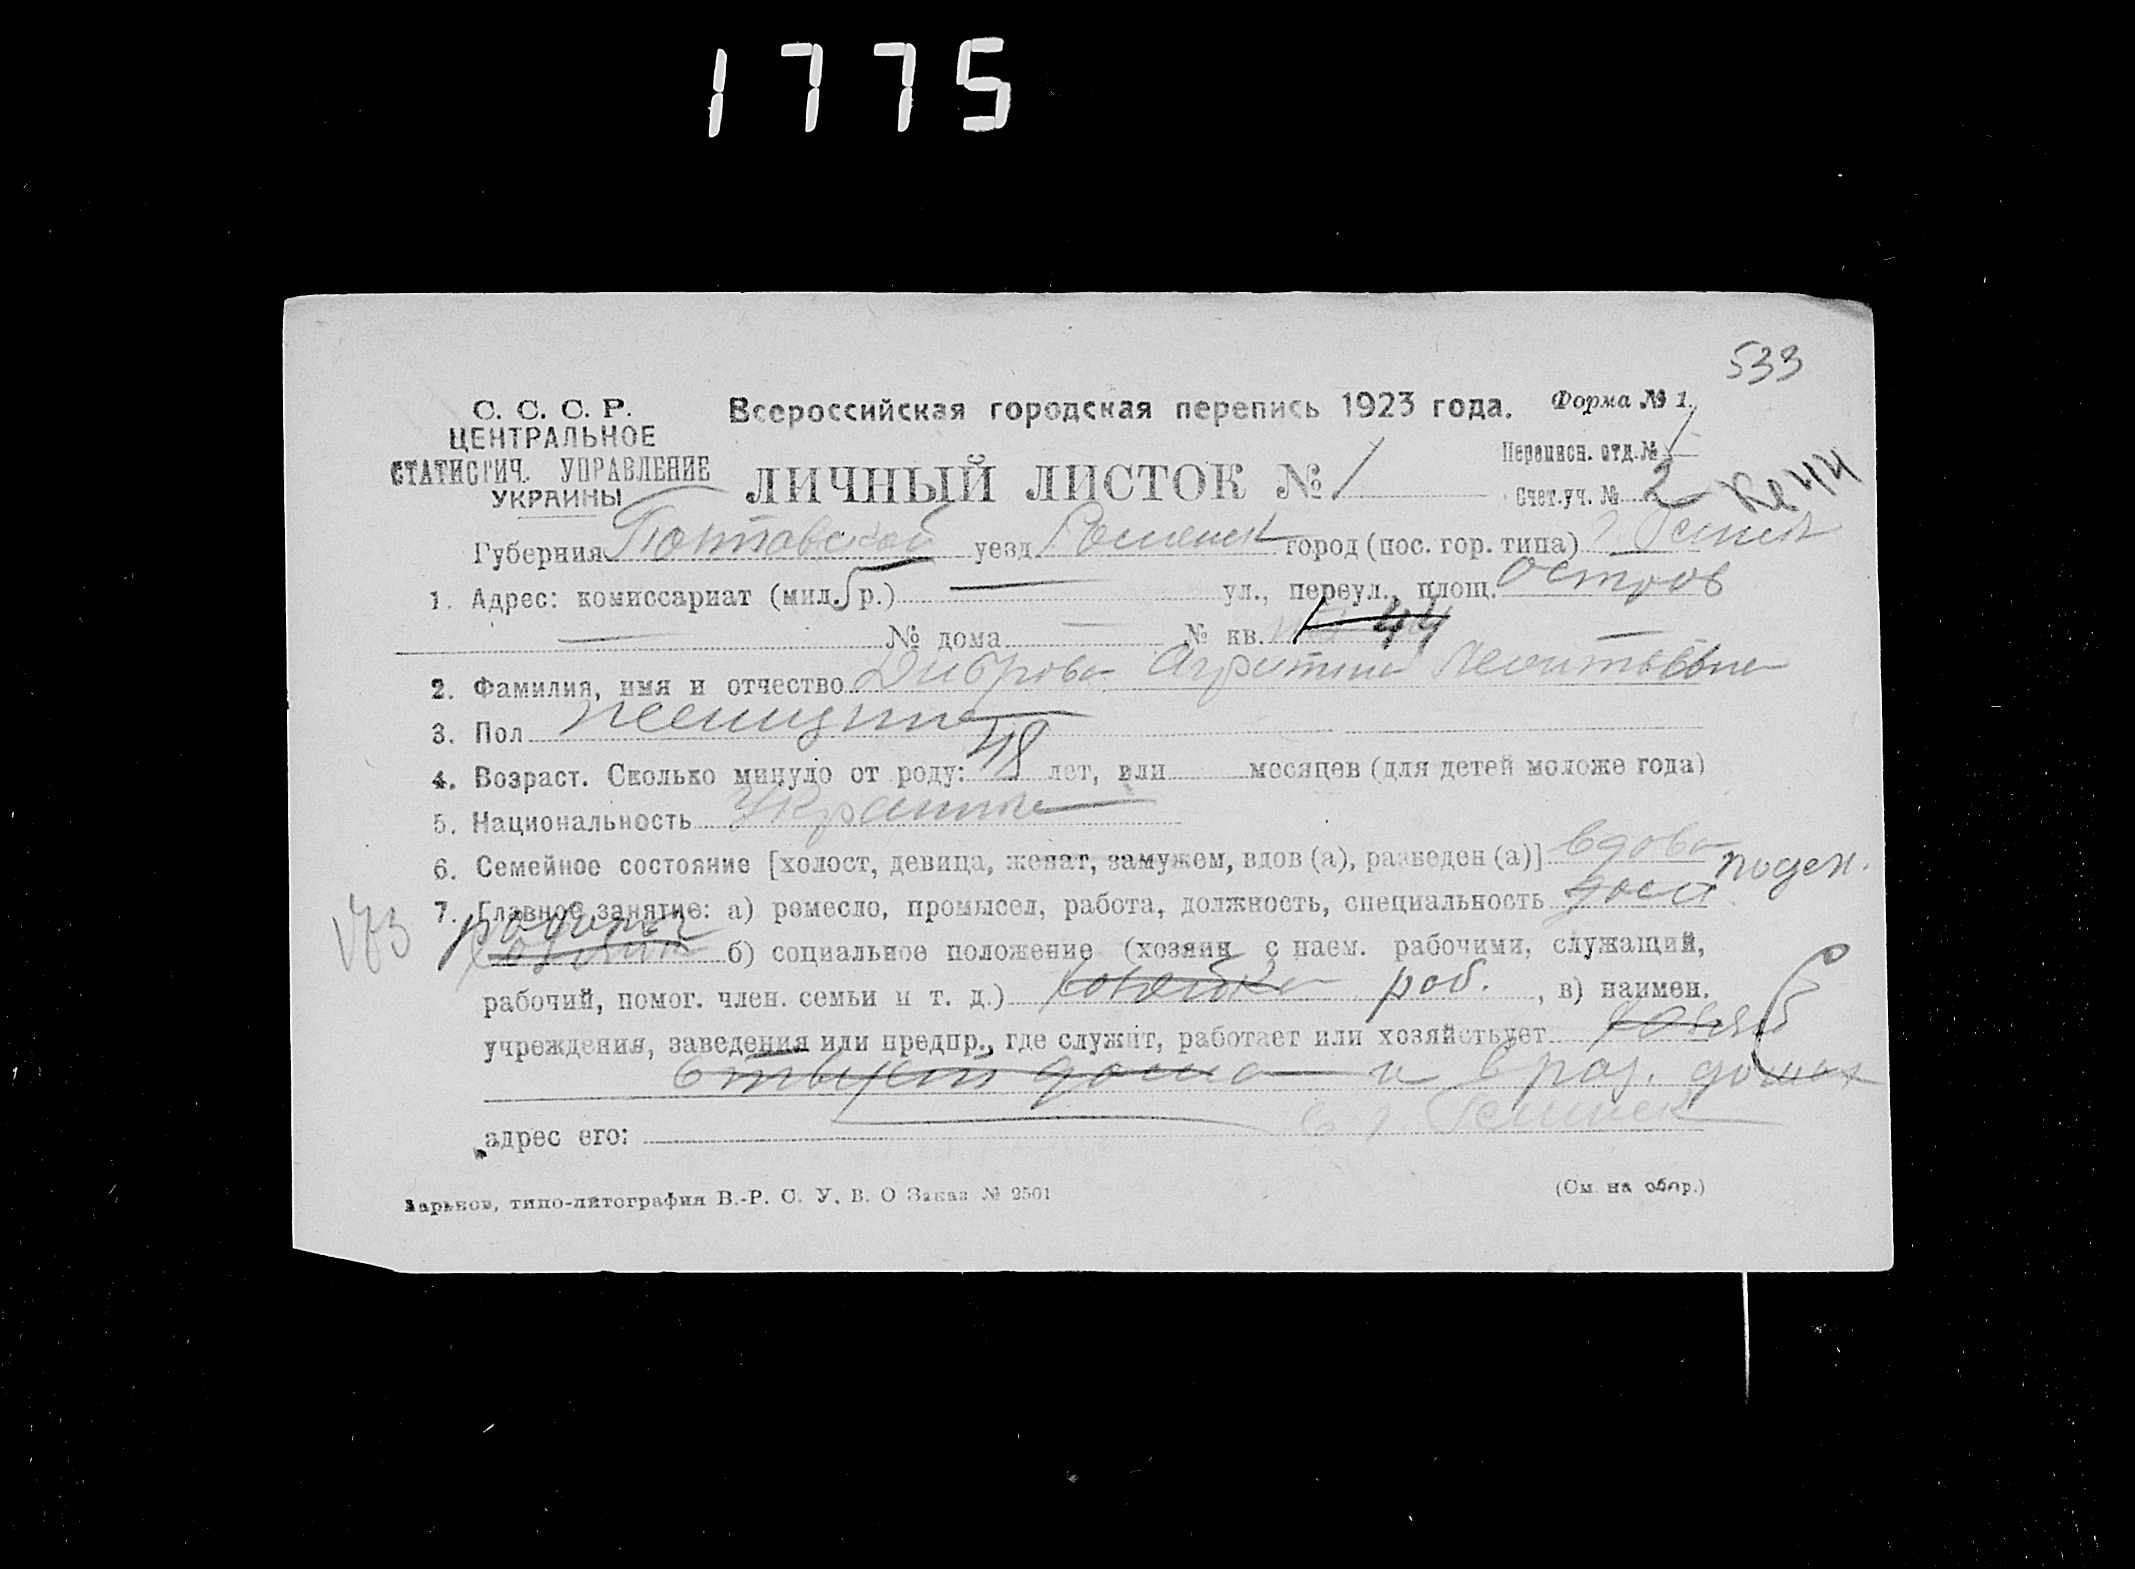 1775
533
С. С. С. Р.
ЦЕНТРАЛЬНОЕ
СТАТИСТИЧ. УПРАВЛЕНИЕ
УКРАИНЫ
Всероссийская городская перепись 1923 года. Форма № 1.
Переписн. отд. № 1
ЛИЧНЫЙ ЛИСТОК № 1
Счет. уч. № 2
Губерния Полтавской уезд Роменск город (пос. гор. типа)
1. Адрес: комиссариат (мил. р.) ул., переул., площ. Остров
№ дома № кв. 44
2. Фамилия, имя и отчество Диброва
3. Пол женщина
4. Возраст. Сколько минуло от роду: 48 лет, или месяцев (для детей моложе года)
5. Национальность Украинка
6. Семейное состояние [холост, девица, женат, замужем, вдов (а), разведен (а)] вдова
7. Главное занятие: а) ремесло, промысел, работа, должность, специальность поден.
173
б) социальное положение (хозяин с наем. рабочими, служащий,
рабочий, помог. член. семьи и т. д.) хозяйка роб. , в) наимен.
учреждения, заведения или предпр., где служит, работает или хозяйствует
дома и в раз. домах
адрес его: в г.
Харьков, типо-литография В.-Р. С. У. В. О Заказ № 2501
(См. на обор.)